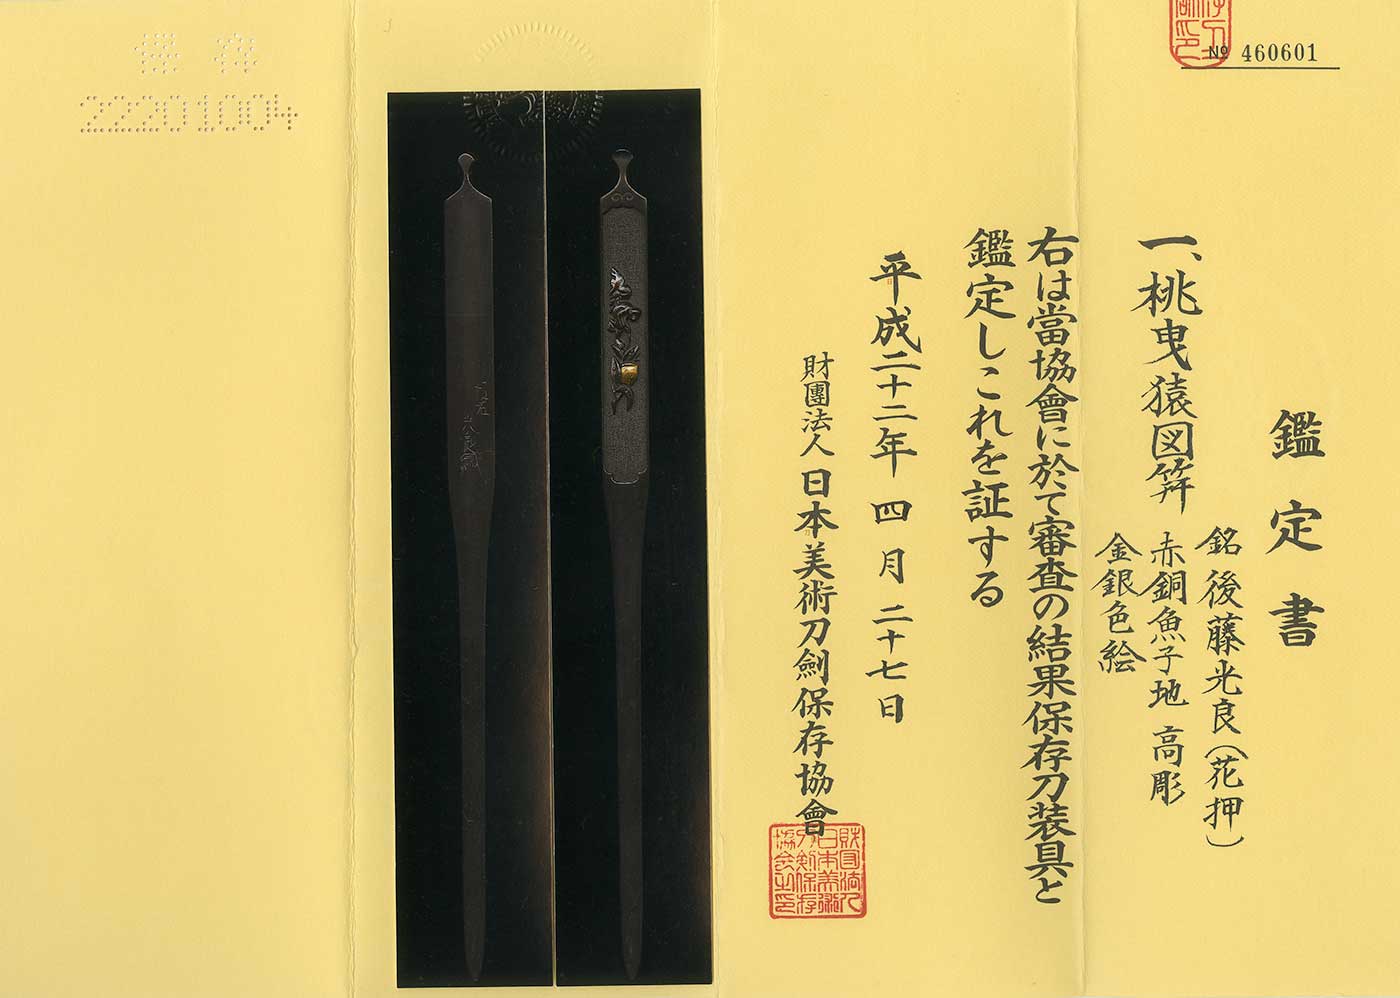 鑑定書
一、桃曳猿図笄
銘 後藤光良(花押)
赤銅魚子地 高彫
金銀色絵
右は當協會に於て審査の結果保存刀装具と
鑑定しこれを証する
平成二十二年 四月 二十七日
財團法人 日本美術刀劍保存協會
財団法人
日本美術
刀剣保存
協会之印
№ 460601
保存
22201004